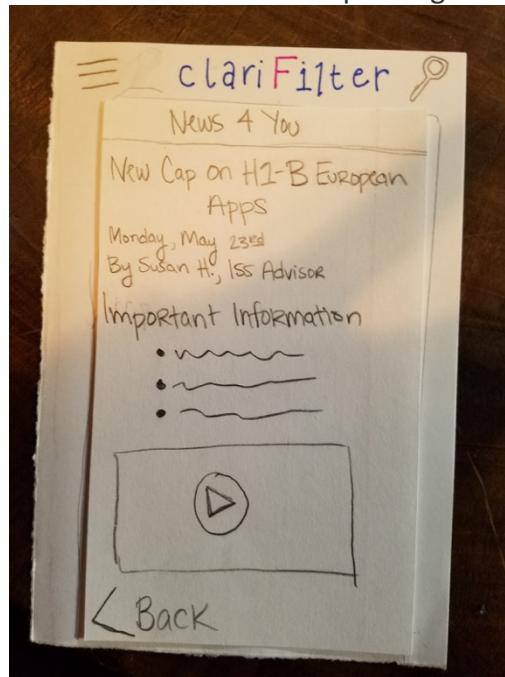 clariFilter
News 4 You
New Cap on H1-B European
Apps
Monday, May 23rd
By Susan H., ISS Advisor
Important Information
Back